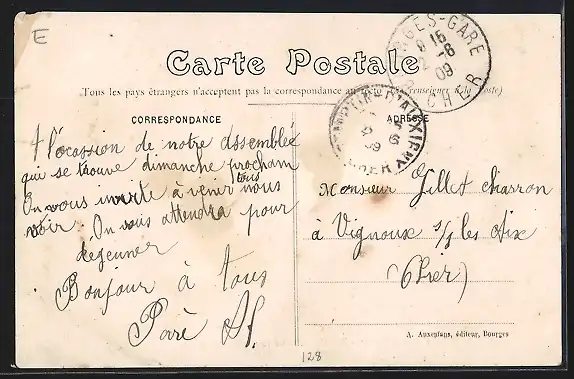 E
Carte Postale
Tous les pays étrangers n'acceptent pas la correspondance au recto (Se renseigner à la Poste)
CORRESPONDANCE
ADRESSE
GES-GARE
16
2-8
09
CHER
A l'ocassion de notre assemblé
qui se trouve dimanche prochain
On vous invite à venir tous nous
voir. On vous attendra pour
déjeuner
Bonjour à tous
Paré
Monsieur Gillet charron
à Vignoux s/s les Aix
(Cher)
A. Auxenfans, éditeur, Bourges
128